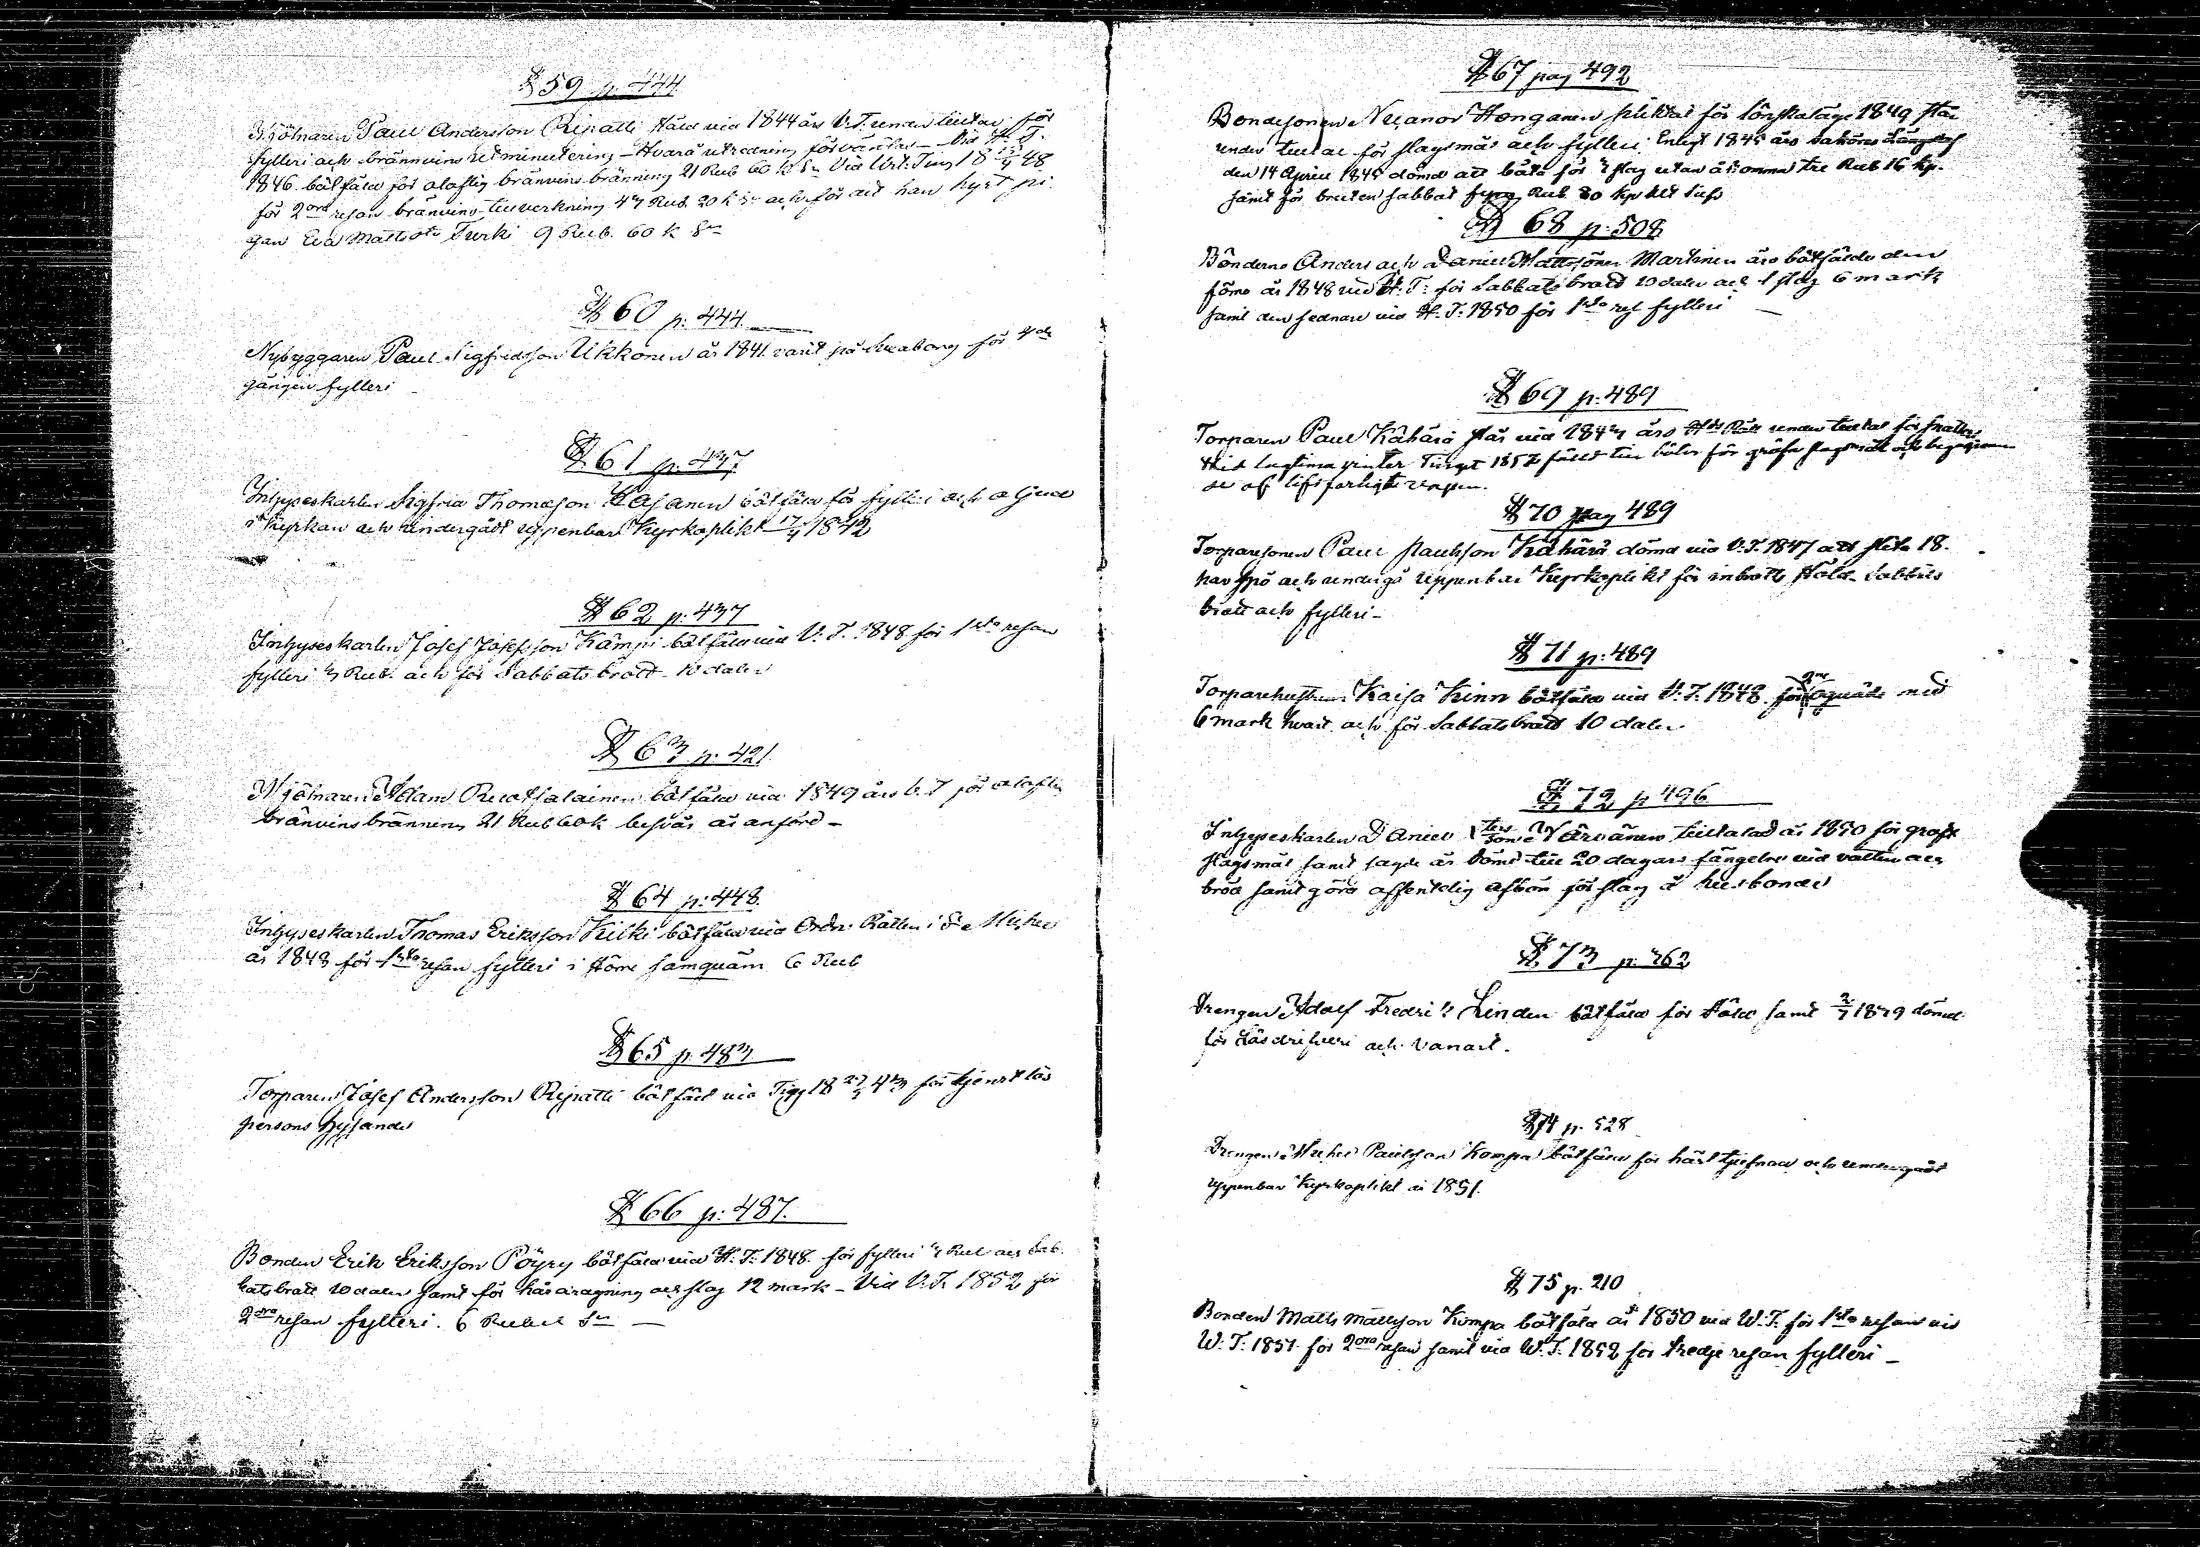 § 59 p. 444
Mjölnaren Paul Andersson Ripatti stäld vid 1844 års V.T. under tiltal för
fylleri och brännvins utminutering – Hvars utredning förväntas – Vid H.T.
1846 bötfäld för olaflig bränvins bränning 21 Rub 60 k Sr Vid Urt. Ting 18 48
för 2dra resan bränvins tillverkning 43 Rub. 20 k Sr och för att han hyst pi
gan Eva Mattsdr Turki 9 Rub. 60 k Sr
§ 60 p. 444.
Nybyggaren Paul Sigfridsson Ukkonen år 1841 varit på Sveaborg för 4de
gången fylleri
§ 61 p. 437
Inhyseskarlen Sigfrid Thomasson Kasanen bötfäld för fylleri och oljud
i Kyrkan och undergått uppenbar Kyrkoplikt 17/4 1842
§ 62 p. 437
Inhyseskarlen Josef Josefsson Kämpi bötfäld vid V. T. 1848 för 1sta resan
fylleri 3 Rub. och för Sabbatsbrott 10 daler
§ 63 p. 421.
Mjölnaren Adam Ruotsalainen bötfäld vid 1849 års V.T för olaflig
bränvins bränning 21 Rub 60 k besvär är anförd –
§ 64 p: 448.
Inhyseskarlen Thomas Eriksson Kilki bötfäld vid Ordn: Rätten i S:t Michel
år 1848 för 1sta resan fylleri i större samqväm 6 Rub
§ 65 p. 483
Torparen Josef Andersson Ripatti bötfäld vid Ting 18 43 för tjenstlös
persons hysande
§ 66 p: 487.
Bonden Erik Eriksson Pöyry bötfäld vid H. T. 1848. för fylleri 3 Rub och Sab.
batsbrott 10 daler samt för håradragning och slag 12 mark – Vid V.T. 1852 för
2dra resan fylleri. 6 Rubel Sr —
§ 67 pag 492
Bondesonen Nicanor Honganen pliktat för 1849 står
under tiltal för slagsmål och fylleri Enligt 1845 års Saköres Längd
den 14 April 1845 dömd att böta för 3 slag utan åkomma tre Rub 16 kp.
samt för bruten sabbat fyra Rub 80 kp
§ 68 p. 508
Bönderne Anders och Daniel Mattssöner Martinen äro bötfälde den
förre år 1848 vid H. T: för Sabbatsbrott 10 daler och 1 slag 6 mark
samt den sednare vid H. T. 1850 för 1sta res fylleri —
§ 69 p. 489
Torparen Paul Kähärä står vid 1843 års under tiltal för
Vid lagtima vinter Tinget 1852 fäld till böter för grofva slagsmål och begagnan
de af lifsfarligt vapen.
§ 70 pag 489
Torparesonen Paul Paulsson Kähärä dömd vid V.T. 1847 att slita 18.
par spö och undergå uppenbar Kyrkoplikt för inbrotts stöld. Sabbats
brott och fylleri –
§ 71 p: 489
Torparehustrun Kaisa Kinn bötfäld vid V.T. 1848 för 2ne oqväde ord
6 mark hvart och för Sabbatsbrott 10 daler
§ 72 p 496
Inhyseskarlen Daniel Närvänen tiltalad år 1850 för groft
slagsmål samt sagde år dömd till 20 dagars fängelse vid vatten och
bröd samt göra offentlig afbön för slag å husbonde
§ 73 p: 362
Drengen Adolf Fredrik Linden bötfäld för stöld samt 2/7 1849 dömd
för lösdrifveri och vanart.
§ 74 p. 528
Drengen Michel Paulsson Kompa bötfäld för häst tjufnad och undergått
uppenbar Kyrkoplikt år 1851.
§ 75 p. 210
Bonden Matts Mattsson Kompa bötfäld år 1850 vid W.T. för 1sta resan vid
W. T: 1851. för 2dra resan samt vid W.T. 1852 för tredje resan fylleri –